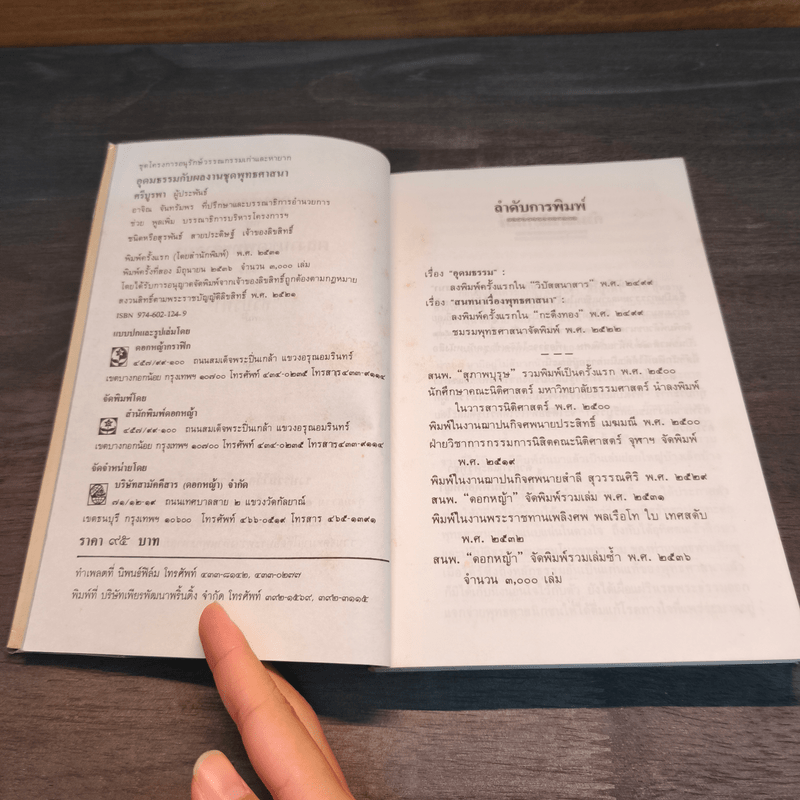 ชุดโครงการอนุรักษ์วรรณกรรมเก่าและหายาก
อุดมธรรมกับผลงานชุดพุทธศาสนา
ศรีบูรพา ผู้ประพันธ์
อาจิณ จันทรัมพร ที่ปรึกษาและบรรณาธิการอำนวยการ
ช่วย พูลเพิ่ม บรรณาธิการบริหารโครงการฯ
ชนิดหรือสุรพันธ์ สายประดิษฐ์ เจ้าของลิขสิทธิ์
พิมพ์ครั้งแรก (โดยสำนักพิมพ์) พ.ศ. ๒๕๓๑
พิมพ์ครั้งที่สอง มิถุนายน ๒๕๓๖ จำนวน ๓,๐๐๐ เล่ม
โดยได้รับการอนุญาตจัดพิมพ์จากเจ้าของลิขสิทธิ์ถูกต้องตามกฎหมาย
สงวนสิทธิ์ตามพระราชบัญญัติลิขสิทธิ์ พ.ศ. ๒๕๒๑
ISBN 974-602-124-9
แบบปกและรูปเล่มโดย
ดอกหญ้ากราฟิก
๔๕๗/๙๙-๑๐๐ ถนนสมเด็จพระปิ่นเกล้า แขวงอรุณอมรินทร์
เขตบางกอกน้อย กรุงเทพฯ ๑๐๗๐๐ โทรศัพท์ ๔๓๔-๐๒๓๕ โทรสาร ๔๓๓-๙๑๑๔
จัดพิมพ์โดย
สำนักพิมพ์ดอกหญ้า
๔๕๗/๙๙-๑๐๐ ถนนสมเด็จพระปิ่นเกล้า แขวงอรุณอมรินทร์
เขตบางกอกน้อย กรุงเทพฯ ๑๐๗๐๐ โทรศัพท์ ๔๓๔-๐๒๓๕ โทรสาร ๔๓๓-๙๑๑๔
จัดจำหน่ายโดย
บริษัทสามัคคีสาร (ดอกหญ้า) จำกัด
๗๑/๑๒-๑๙ ถนนเทศบาลสาย ๒ แขวงวัดกัลยาณ์
เขตธนบุรี กรุงเทพฯ ๑๐๖๐๐ โทรศัพท์ ๔๖๖-๐๕๑๙ โทรสาร ๔๖๕-๑๓๙๑
ราคา ๙๕ บาท
ทำเพลตที่ นิพนธ์ฟิล์ม โทรศัพท์ ๔๓๓-๘๑๔๒, ๔๓๓-๐๒๗๗
พิมพ์ที่ บริษัทเพียรพัฒนาพริ้นติ้ง จำกัด โทรศัพท์ ๓๙๒-๑๕๖๙, ๓๙๒-๓๑๑๕
ลำดับการพิมพ์
เรื่อง "อุดมธรรม" :
ลงพิมพ์ครั้งแรกใน "วิปัสสนาสาร" พ.ศ. ๒๔๙๙
เรื่อง "สนทนาเรื่องพุทธศาสนา" :
ลงพิมพ์ครั้งแรกใน "กะดึงทอง" พ.ศ. ๒๔๙๙
ชมรมพุทธศาสนาจัดพิมพ์ พ.ศ. ๒๕๒๒
– – –
สนพ. "สุภาพบุรุษ" รวมพิมพ์เป็นครั้งแรก พ.ศ. ๒๕๐๐
นักศึกษาคณะนิติศาสตร์ มหาวิทยาลัยธรรมศาสตร์ นำลงพิมพ์
ในวารสารนิติศาสตร์ พ.ศ. ๒๕๐๐
พิมพ์ในงานฌาปนกิจศพนายประสิทธิ์ เมฆมณี พ.ศ. ๒๕๐๐
ฝ่ายวิชาการกรรมการนิสิตคณะนิติศาสตร์ จุฬาฯ จัดพิมพ์
พ.ศ. ๒๕๑๙
พิมพ์ในงานฌาปนกิจศพนายสำลี สุวรรณศิริ พ.ศ. ๒๕๒๙
สนพ. "ดอกหญ้า" จัดพิมพ์รวมเล่ม พ.ศ. ๒๕๓๑
พิมพ์ในงานพระราชทานเพลิงศพ พลเรือโท ใบ เทศสดับ
พ.ศ. ๒๕๓๒
สนพ. "ดอกหญ้า" จัดพิมพ์รวมเล่มซ้ำ พ.ศ. ๒๕๓๖
จำนวน ๓,๐๐๐ เล่ม